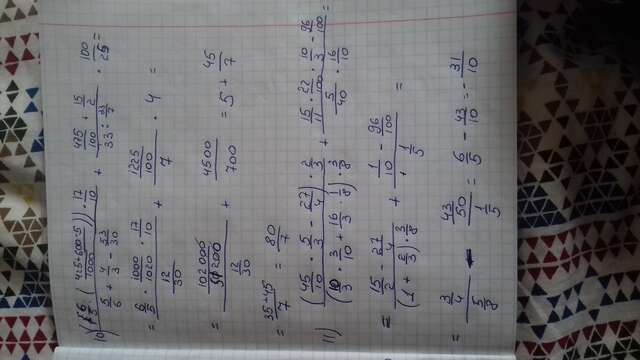 10) (6/5 : (425+600-5)/1000)) · 17/10 / 5/6 + 4/3 - 53/30 + 475/100 + 15/2 / 33 : 33/7 · 100/25 =
= 6/5 · 1000/1020 · 17/10 / 12/30 + 1225/100 / 7 · 4 =
= 102000/51000 / 12/30 + 4500/700 = 5 + 45/7
= 35+45/7 = 80/7
11) (45/10 · 5/3 - 27/4) · 2/3 / (10/3 · 3/10 + 16/3 · 1/8) · 3/8 + 15/11 · 22/100 · 10/3 - 96/100 / 5/40 · 16/10 =
= 15/2 - 27/4 / (1 + 2/3) · 3/8 + 1/10 - 96/100 / 1/5 =
= 3/4 / 5/8 - 43/50 / 1/5 = 6/5 - 43/10 = - 31/10